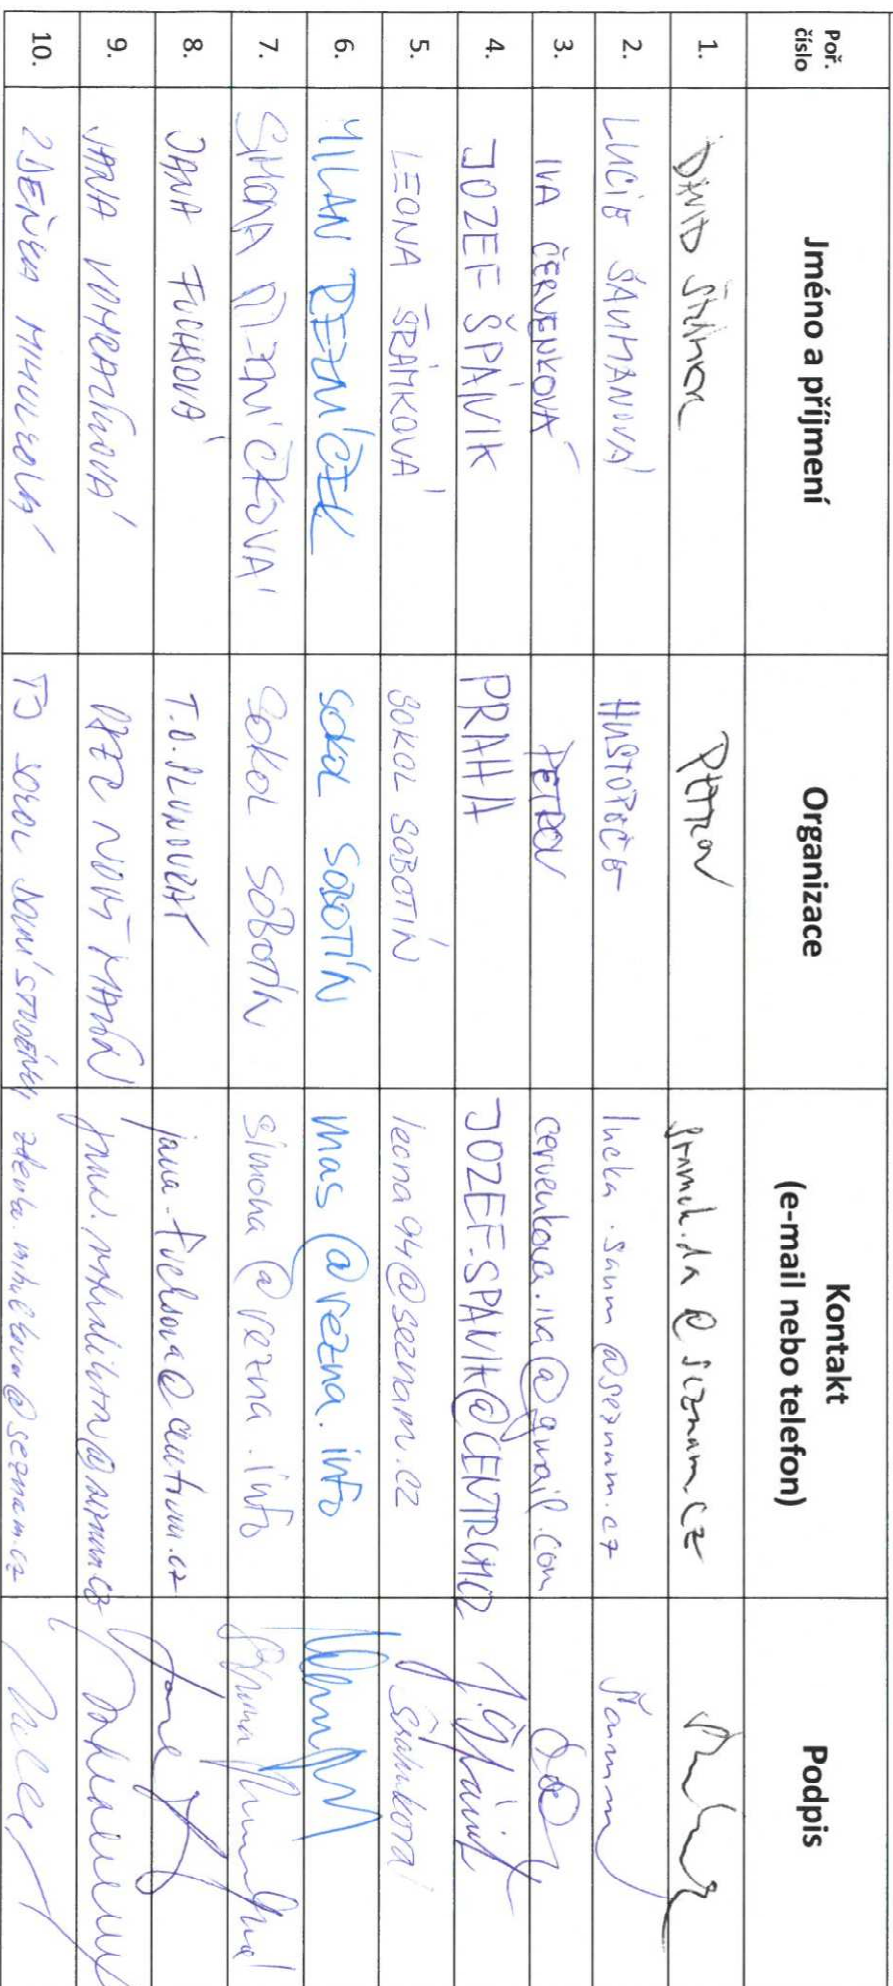 Poř. číslo Jméno a příjmení Organizace Kontakt (e-mail nebo telefon) Podpis
1. DAVID ŠRÁMEK PETROV sramek.da@seznam.cz
2. LUCIE ŠAUMANOVÁ HUSTOPEČE lucka.saum@seznam.cz
3. IVA ČERVENKOVÁ PETROV cervenkova.iva@gmail.com
4. JOZEF ŠPÁNIK PRAHA JOZEF.SPANIK@CENTRUM.CZ J. Špánik
5. LEONA ŠRÁMKOVÁ SOKOL SOBOTÍN leona94@seznam.cz Šrámková
6. MILAN ŘEZNÍČEK SOKOL SOBOTÍN mas@rezna.info
7. SIMONA ŘEZNÍČKOVÁ SOKOL SOBOTÍN simona@rezna.info
8. JANA FUCHSOVÁ T.O. SLUNOVRAT jana-fuchsova@centrum.cz
9. JANA OBEC NOVÝ MALÍN
10. ZDEŇKA MIHULKOVÁ TJ SOKOL DOLNÍ STUDÉNKY zdenka.mihulkova@seznam.cz